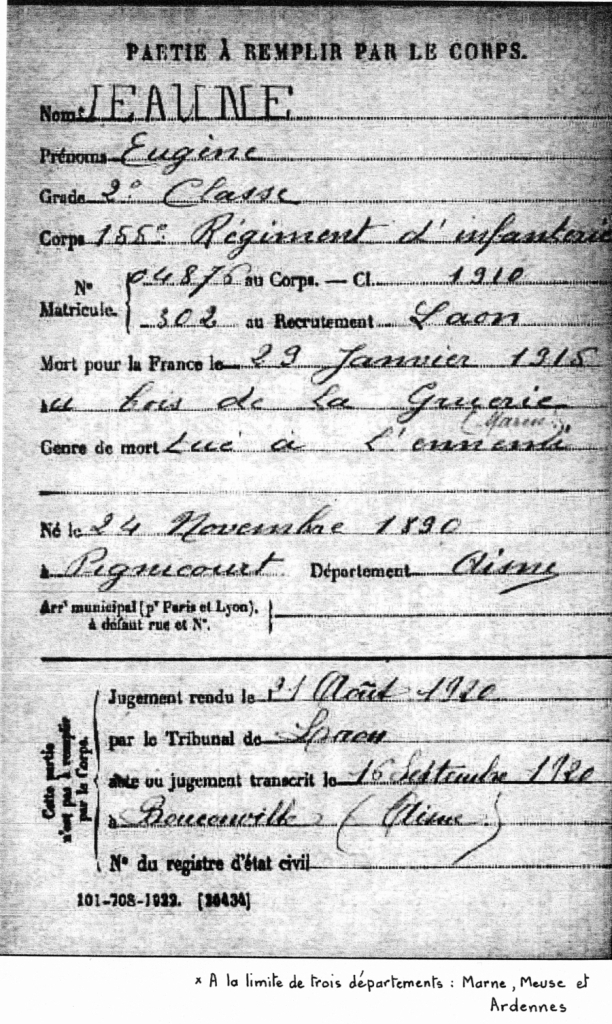 PARTIE À REMPLIR PAR LE CORPS.
Nom JEAUNE
Prénoms Eugène
Grade 2e Classe
Corps 155e Régiment d'infanterie
N° Matricule. 04876 au Corps. — Cl. 1910
302 au Recrutement Laon
Mort pour la France le 29 Janvier 1915
au bois de la Gruerie
(Marne)
Genre de mort tué à l'ennemi
Né le 24 Novembre 1890
à Pignicourt Département Aisne
Arrt municipal (pr Paris et Lyon),
à défaut rue et N°.
Cette partie n'est pas à remplir par le Corps.
Jugement rendu le 21 Août 1920
par le Tribunal de Laon
acte ou jugement transcrit le 16 Septembre 1920
à Bouconville (Aisne)
N° du registre d'état civil
101-708-1922. [26434]
* A la limite de trois départements : Marne, Meuse et
Ardennes